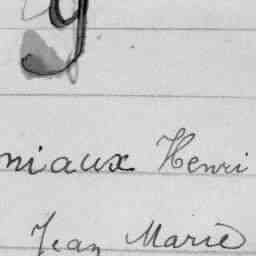 g
niaux Henri
Jean Marie